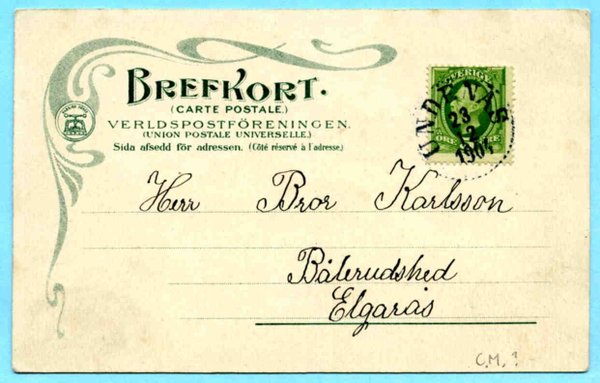 BREFKORT.
(CARTE POSTALE.)
VERLDSPOSTFÖRENINGEN.
(UNION POSTALE UNIVERSELLE.)
Sida afsedd för adressen. (Côté réservé à l'adresse.)
SVERIGE
UNDEVÅS
23
12
1904
ÖRE
Herr Bror Karlsson
Bålerudshed
Elgarås
C.M.?